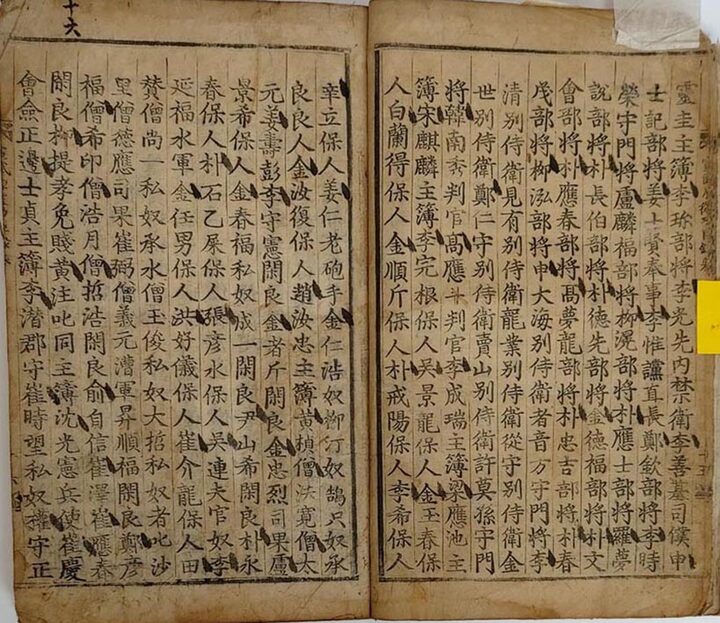 靈圭主簿李珎部將李光先內禁衛李善基司僕申
士記部將姜士賁奉事李惟讜直長鄭欽部將李時
榮守門將盧麟福部將柳滉部將朴應士部將羅夢
說部將朴長伯部將朴德先部將金德福部將朴文
會部將朴應春部將高夢龍部將朴忠吉部將朴春
茂部將柳泓部將申大海別侍衛者音万守門將李
清別侍衛見有別侍衛龍業別侍衛從守別侍衛金
世別侍衛鄭仁守別侍衛賣山別侍衛許莫孫守門
將韓南秀判官高應斗判官李成瑞主簿梁應池主
簿宋麒麟主簿李完根保人吳景龍保人金玉春保
人白蘭得保人金順斤保人朴戒陽保人李希保人
十六
幸立保人姜仁老砲手金仁浩奴柳汀奴鵠只奴承
良良人金汝復保人趙汝忠主簿黃楨僧法寬僧太
元姜壽彭李守憲閑良金者斤閑良金忠烈司果盧
景希保人金春福私奴成一閑良尹山希閑良朴永
春保人朴石乙屎保人張彥水保人吳連夫官奴李
延福水軍金任男保人洪好儀保人崔介龍保人田
贊僧尚一私奴承水僧王俊私奴大哲私奴者叱沙
里僧德應司果崔弼僧義元漕軍昇順福閑良鄭彥
福僧希印僧浩月僧哲浩閑良俞自信崔澤崔應春
閑良柳提孝免賤黃注叱同主簿沈光憲兵使崔慶
會僉正邊士貞主簿李潛郡守崔時望私奴權守正